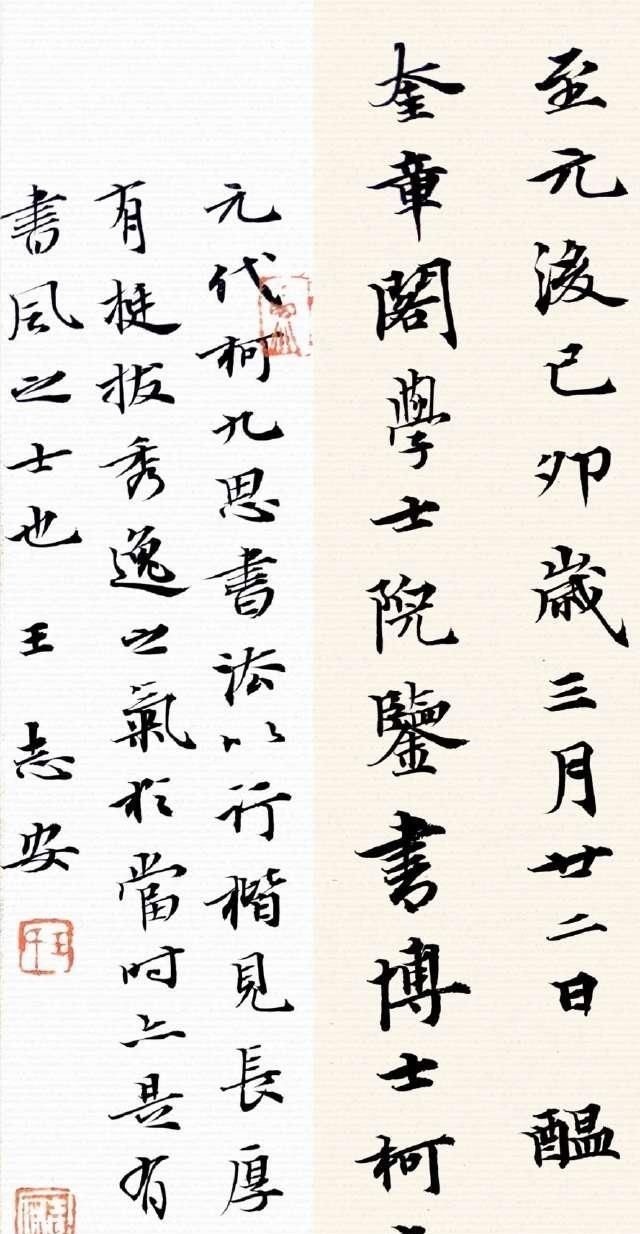 至元後己卯歲三月廿二日 醖
奎章閣學士院鑒書博士柯
元代柯九思書法以行楷見長厚
有挺拔秀逸之氣於當時亦是有
書風之士也 王志安